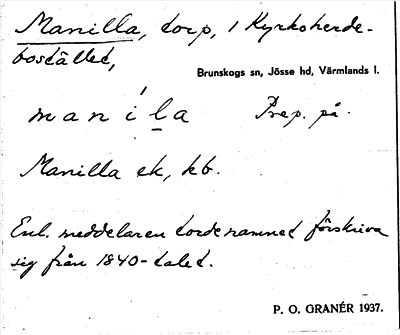 Manilla, torp, i Kyrkoherde-
bostället,
Brunskogs sn, Jösse hd, Värmlands l.
manila Prep. på.
Manilla ek, kb.
Enl. meddelaren torde namnet förskriva
sig från 1840-talet.
P. O. GRANÉR 1937.